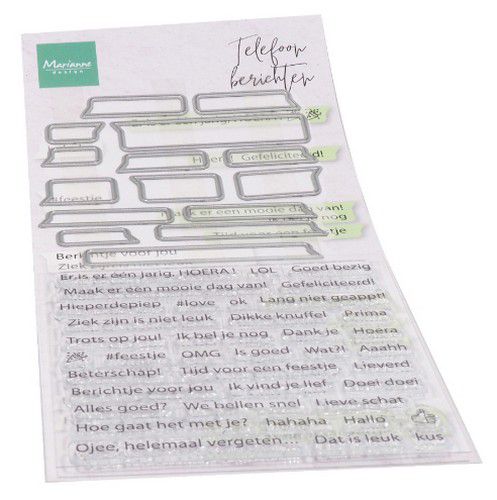 Marianne
design
Telefoon
berichten
Hoera! Gefeliciteerd!
#feestje
Maak er een mooie dag van!
je nog
Tijd voor een feestje
Berichtje voor jou
Ziek zijn is niet leuk
Er is er één jarig, HOERA! LOL Goed bezig
Maak er een mooie dag van! Gefeliciteerd!
Hieperdepiep #love ok Lang niet geappt!
Ziek zijn is niet leuk Dikke knuffel Prima
Trots op jou! Ik bel je nog Dank je Hoera
#feestje OMG Is goed Wat?! Aaahh
Beterschap! Tijd voor een feestje Lieverd
Berichtje voor jou Ik vind je lief Doei doei
Alles goed? We bellen snel Lieve schat
Hoe gaat het met je? hahaha Hallo
Ojee, helemaal vergeten... Dat is leuk kus